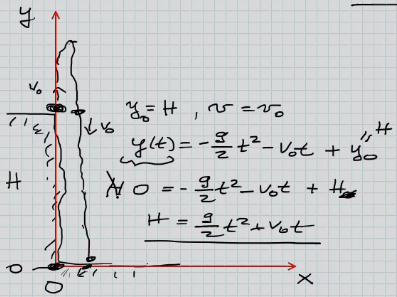 y
v₀
v₀
y₀ = H , v = v₀
H
y(t) = -g/2 t² - v₀t + y₀
H
0 = -g/2 t² - v₀t + H
H = g/2 t² + v₀t
0
0
x